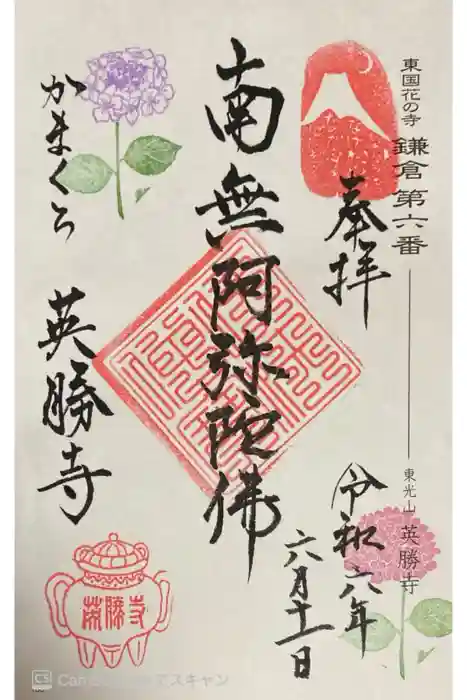 東国花の寺 鎌倉第六番
東光山 英勝寺
奉拝
令和六年
六月十一日
南無阿弥陀佛
かまくら
英勝寺
英勝寺
CS CamScannerでスキャン